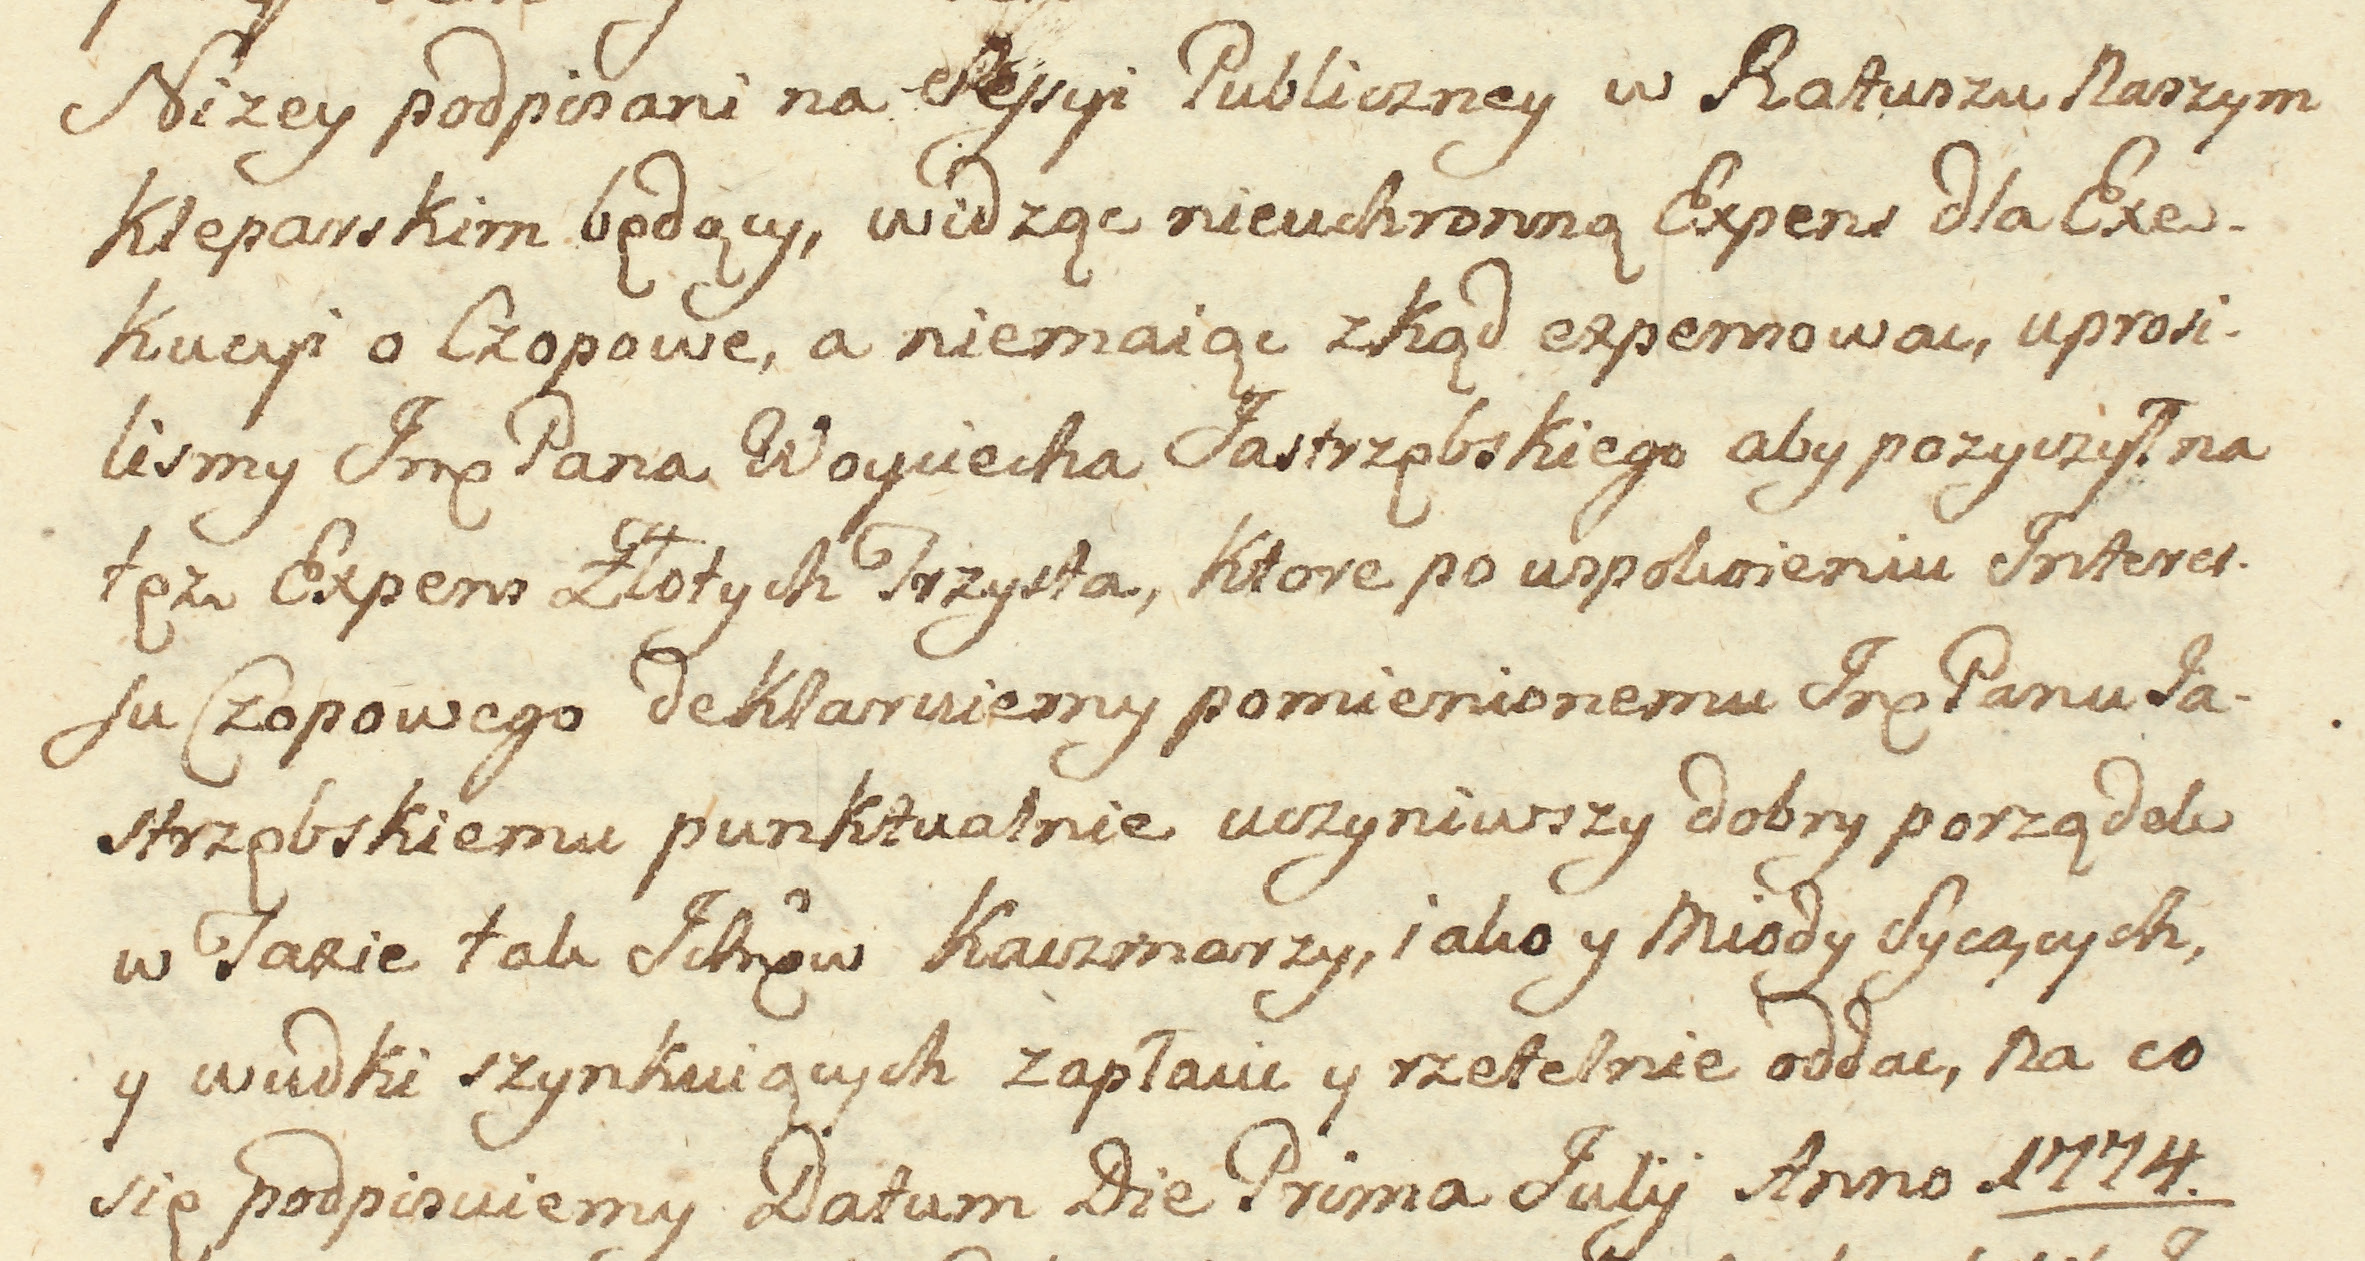 Nizey podpisani na Sessyi Publiczney w Ratuszu Naszym
Kleparskim będący, widząc nieuchronną Expens dla Exe-
kucyi o Czopowe, a niemaiąc zkąd expensowac, uprosi-
lismy Jmę Pana Woyciecha Jastrzębskiego aby pozyczył na
tęz Expens Złotych Trzysta, ktore po uspokoieniu Interes-
su Czopowego deklaruiemy pomienionemu Jmę Panu Ja-
strzębskiemu punktualnie uczyniwszy dobry porządek
w Taxie tak Ichmę̃w Kaczmarzy, iako y Miody Sycących,
y wudki szynkuiących zapłacic y rzetelnie oddac, na co
się podpisuiemy Datum Die Prima Julij Anno 1774.